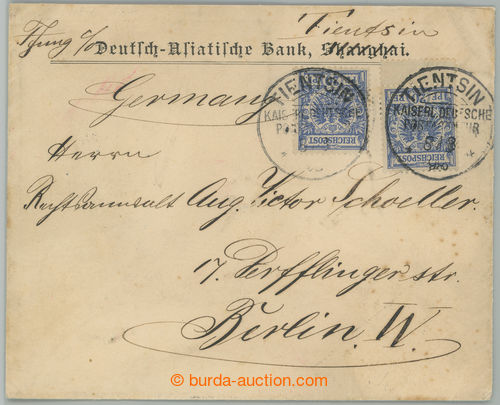 Tientsin
Deutsch-Asiatische Bank, Shanghai.
Germany
TIENTSIN
KAISERL. DEUTSCHE
REICHSPOST
TIENTSIN
KAISERL. DEUTSCHE
5/3
REICHSPOST
Herrn
Rechtsanwalt Aug. Victor Schoeller.
17. Derfflinger str.
Berlin. W.
burda-auction.com